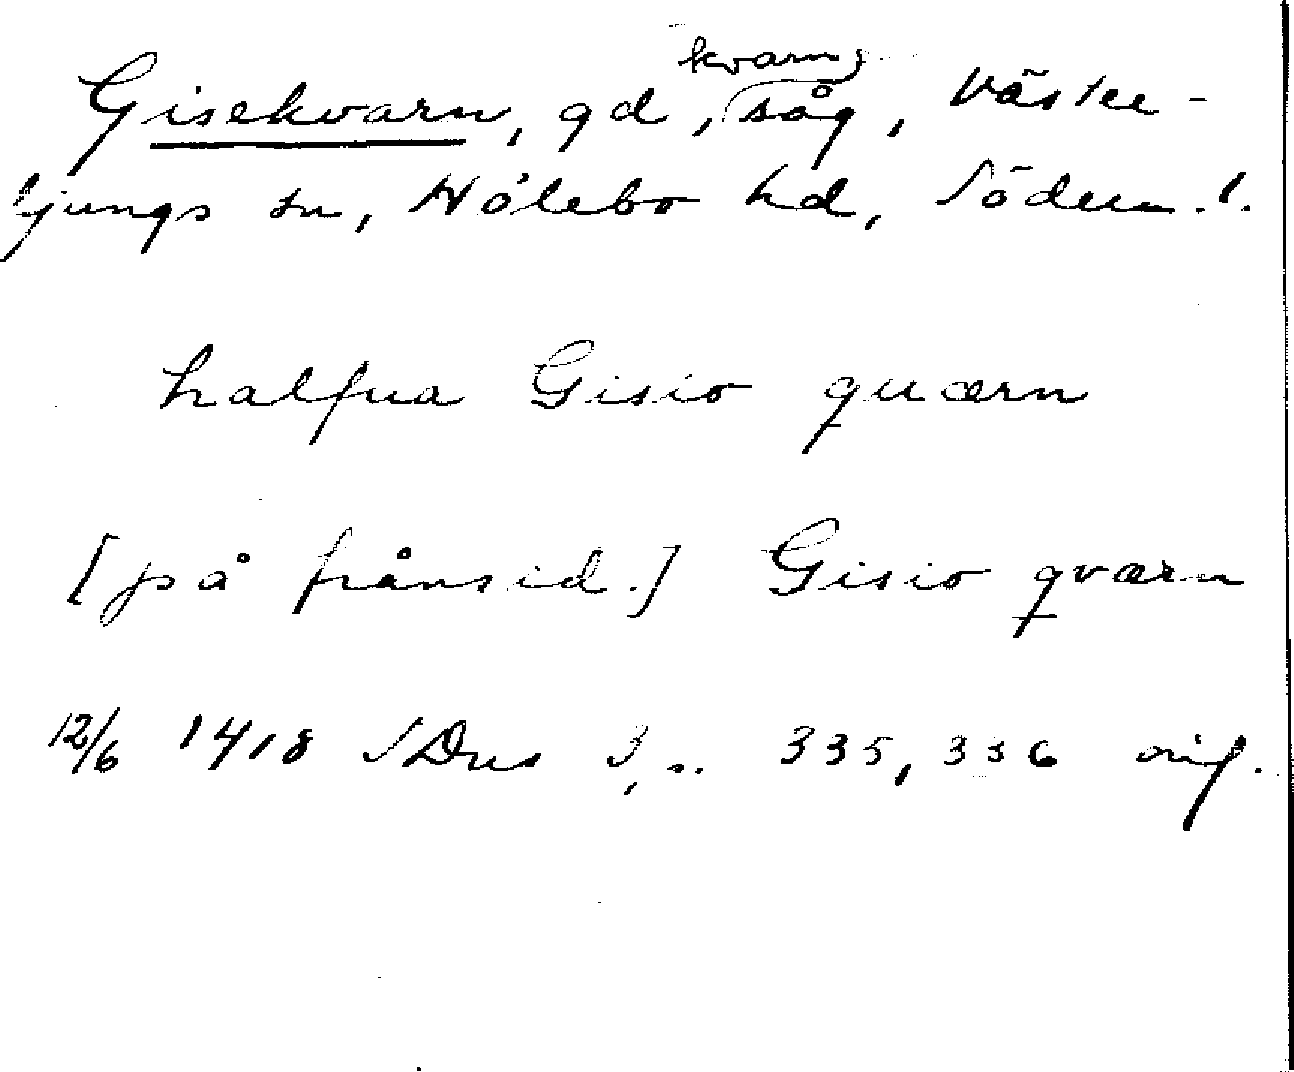 Gisekvarn, gd, kvarn, såg, Väster-
ljungs sn, Hölebo hd, Söderm. l.
halfua Gisio quærn
[på frånsid.] Gisio qværn
12/6 1418 SDns 3, s. 335, 336 orig.